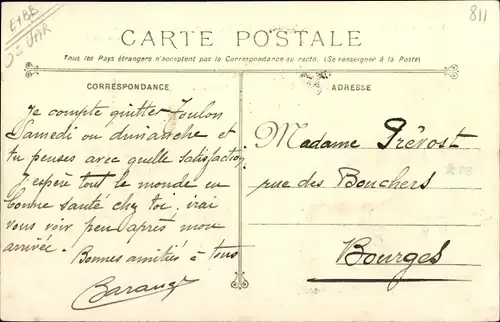 E+BB
VAR
811
CARTE POSTALE
Tous les Pays étrangers n'acceptent pas la Correspondance au recto. (Se renseigner à la Poste)
CORRESPONDANCE
Je compte quitter Toulon
Samedi ou dimanche et
tu penses avec quelle satisfaction
J'espère tout le monde en
bonne santé chez toi. irai
vous voir peu après mon
arrivée.
Bonnes amitiés à tous
ADRESSE
Madame Prévost
rue des Bouchers
Bourges